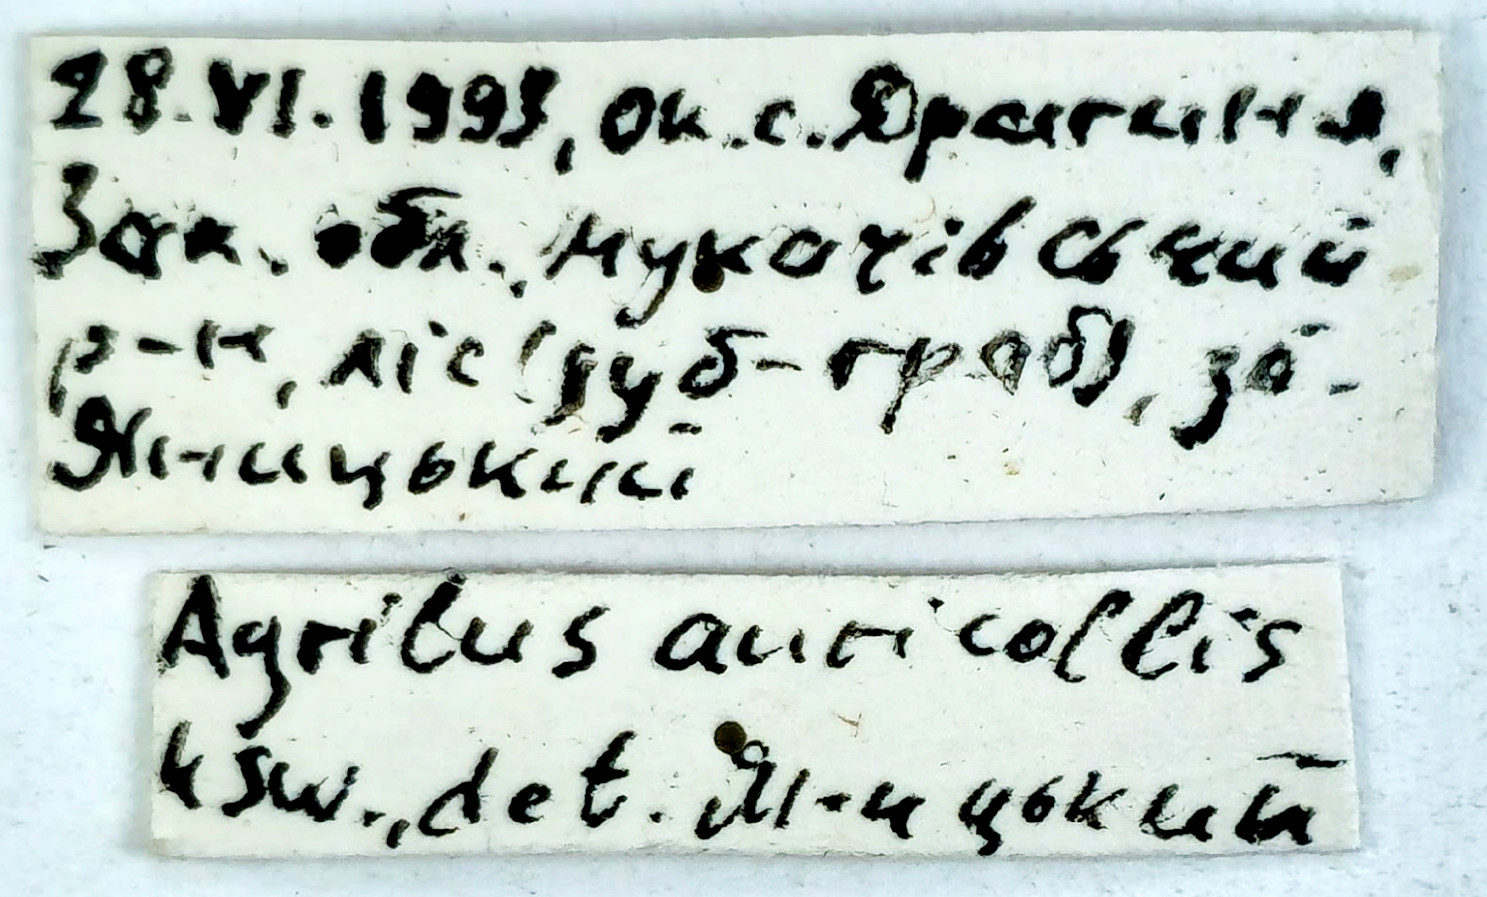 28.VI.1993, ок.с. Драгиня,
Зак. обл., Мукачівський
р-н, ліс (дуб-граб), зб.
Яницький
Agrilus auricollis
Ksw., det. Яницький